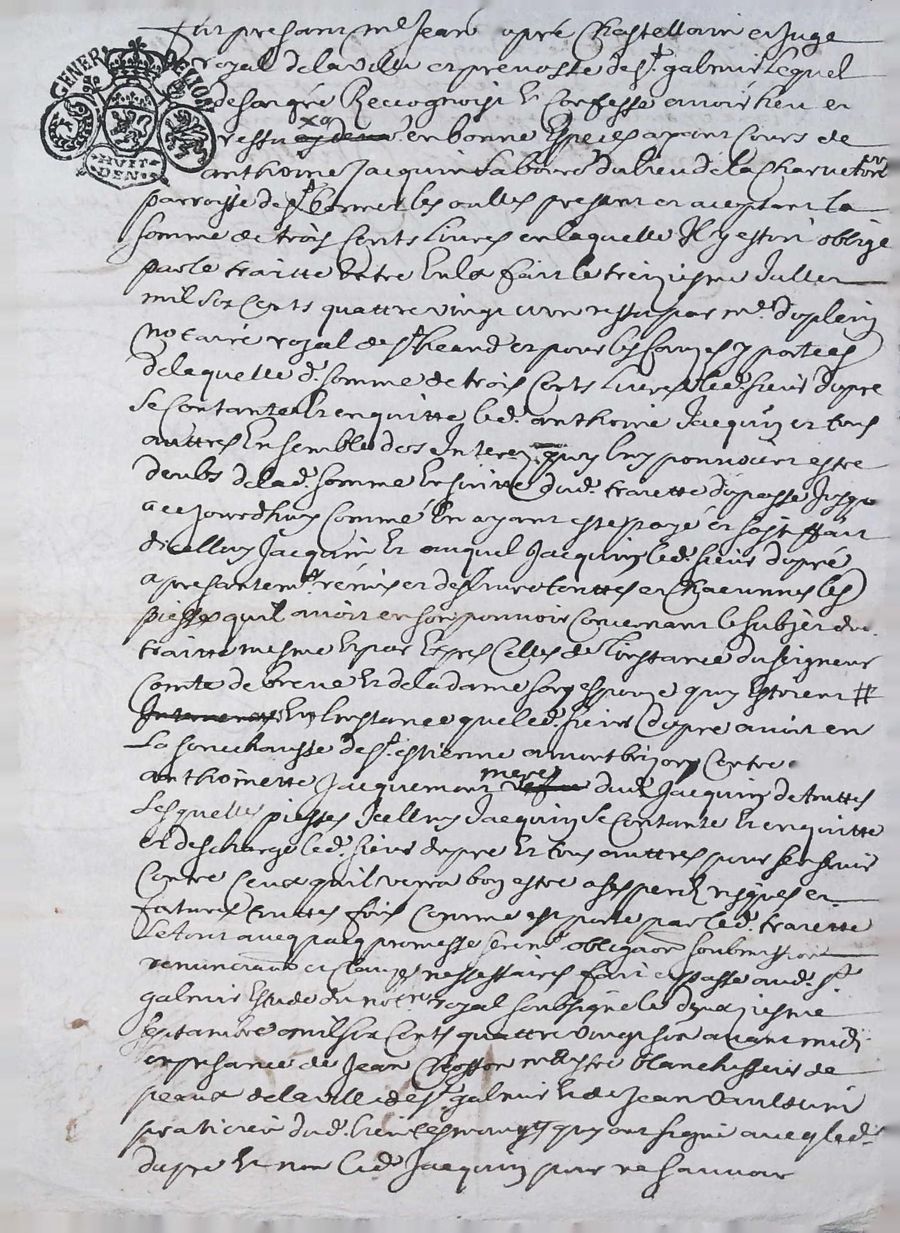 GENER DE LION
HUIT DEN
Fut presant me Jean dupré Chastellain et Juge
royal de la ville et prevosté de st galmier Lequel
de son gré Reccognoist Et Confesse avoir heu et
ressu en bonne Especes ayant Cours de
anthoine Jacquin labour du lieu de la
parroisse de st bonnet les oulles present et aceptant La
somme de trois Cents Livres en laquelle Il estoit obligé
par le traitte Entre Eulx fait le treiziesme Jullet
mil six Cents quattre vingt ressu par me duplein
nottaire royal de st heand et pour les Causes y portees
de laquelle d. somme de trois Cents Livres led. sieur dupré
se Contante Et en quitte led. anthoine Jacquin et tous
auttres Ensemble des Interez quy luy pourroient estre
deubs de la d. somme En suitte dud. traitte du passé Jusqu
a ce jourdhuy Comme En ayant este payé et sattiffait
dicelluy Jacquin Et auquel Jacquin led. sieur dupré
a presantemt rémis et deslivré touttes et Chacunnes les
piesses quil avoit en son pouvoir Concernant le subjet du
traitte mesme Et par Expres Celles de Linstance du seigneur
Comte de Et de la dame son espouze quy Estoient #
En Linstance que led. sieur dupré avoit en
La senechaussé de st estienne a montbrizon Contre
anthoinette Jacquemont mere dud. Jacquin de touttes
Lesquelles piesses Icelluy Jacquin se Contante Et en quitte
Et descharge led. sieur dupré Et tous auttres pour sen servir
Contre Ceux quil verra bon estre a ses perilz risques et
fortunes touttes fois Comme est porte par led. traitte
Le tout avecq promesse obligaon soubmission
renunciaon et Clauzes nessessaires fait et passé aud. st
galmier Estude du nottre royal soubsigné le deuxiesme
septambre mil six Cents quattre vingt six avant midi
en presance de Jean maistre blanchisseur de
peaux de la ville de st galmier Et de Jean
praticien dud. lieu quy ont signé avecq led.
dupré Et non led. Jacquin pour ne sçauvoir